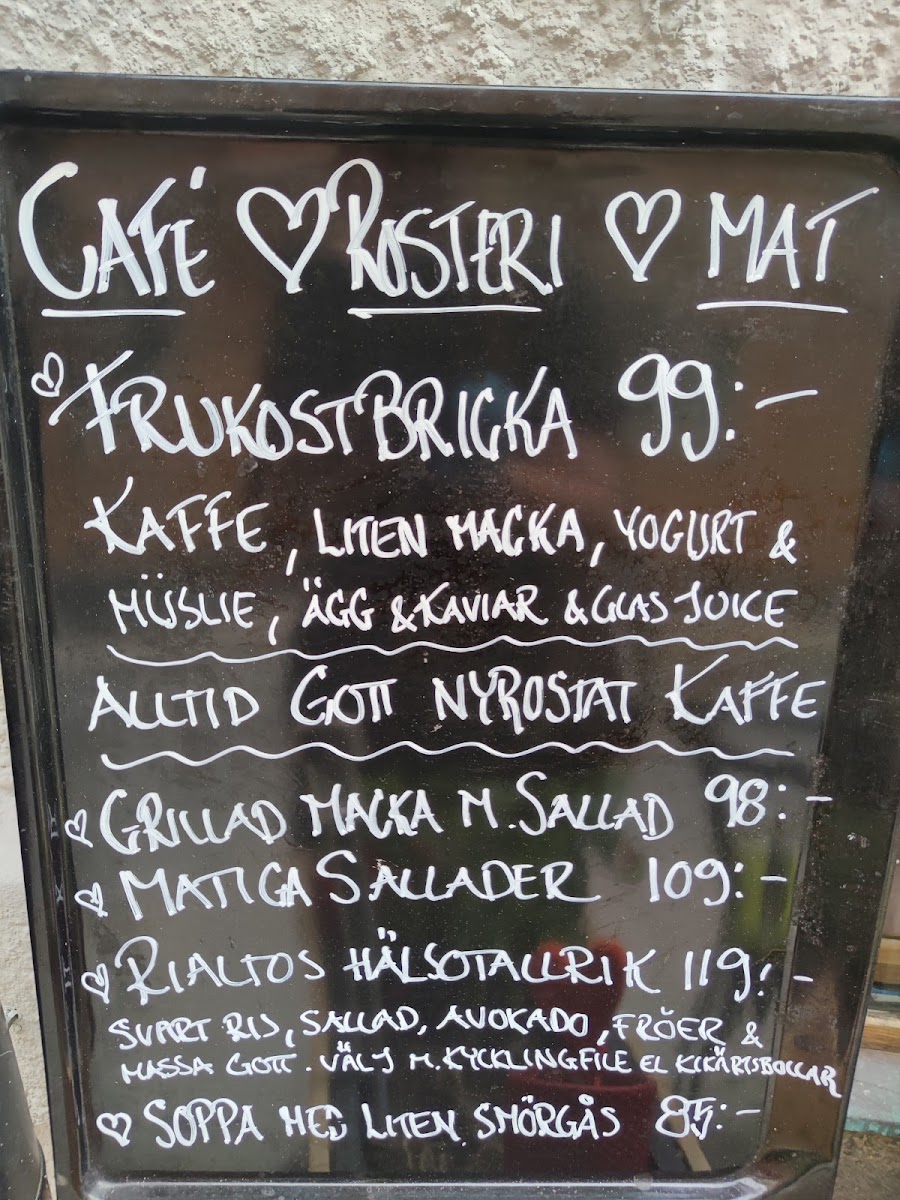 CAFÉ ♡ ROSTERI ♡ MAT
♡ FRUKOSTBRICKA 99:-
KAFFE, LITEN MACKA, YOGURT &
MÜSLIE, ÄGG & KAVIAR & GLAS JUICE
ALLTID GOTT NYROSTAT KAFFE
♡ GRILLAD MACKA M. SALLAD 98:-
♡ MATIGA SALLADER 109:-
♡ RIALTOS HÄLSOTALLRIK 119:-
SVART RIS, SALLAD, AVOKADO, FRÖER &
MASSA GOTT. VÄLJ M. KYCKLINGFILE EL KIKÄRTSBOLLAR
♡ SOPPA MED LITEN SMÖRGÅS 85:-